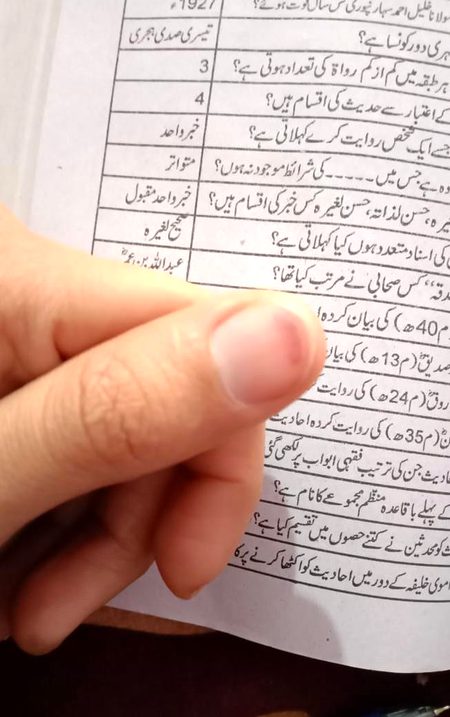 مولانا خلیل احمد سہارنپوری کس سال فوت ہوئے؟ 1927ء
ہری دور کونسا ہے؟ تیسری صدی ہجری
ہر طبقہ میں کم از کم رواۃ کی تعداد ہوتی ہے؟ 3
کے اعتبار سے حدیث کی اقسام ہیں؟ 4
جسے ایک شخص روایت کرے کہلاتی ہے؟ خبر واحد
وہ ہے جس میں ۔۔۔۔۔ کی شرائط موجود نہ ہوں؟ متواتر
یرہ، حسن لذاتہ، حسن لغیرہ کس خبر کی اقسام ہیں؟ خبر واحد مقبول
کی اسناد متعدد ہوں کیا کہلاتی ہے؟ صحیح لغیرہ
دقہ“ کس صحابی نے مرتب کیا تھا؟ عبداللہ بن عمرؓ
(م40ھ) کی بیان کردہ ا
صدیقؓ (م13ھ) کی بیان
روقؓ (م24ھ) کی روایت
نؓ (م35ھ) کی روایت کردہ احادیث
حادیث جن کی ترتیب فقہی ابواب پر لکھی گئی
کے پہلے باقاعدہ منظم مجموعے کا نام ہے؟
ث کو محدثین نے کتنے حصوں میں تقسیم کیا ہے؟
اموی خلیفہ کے دور میں احادیث کو اکٹھا کرنے پر کا